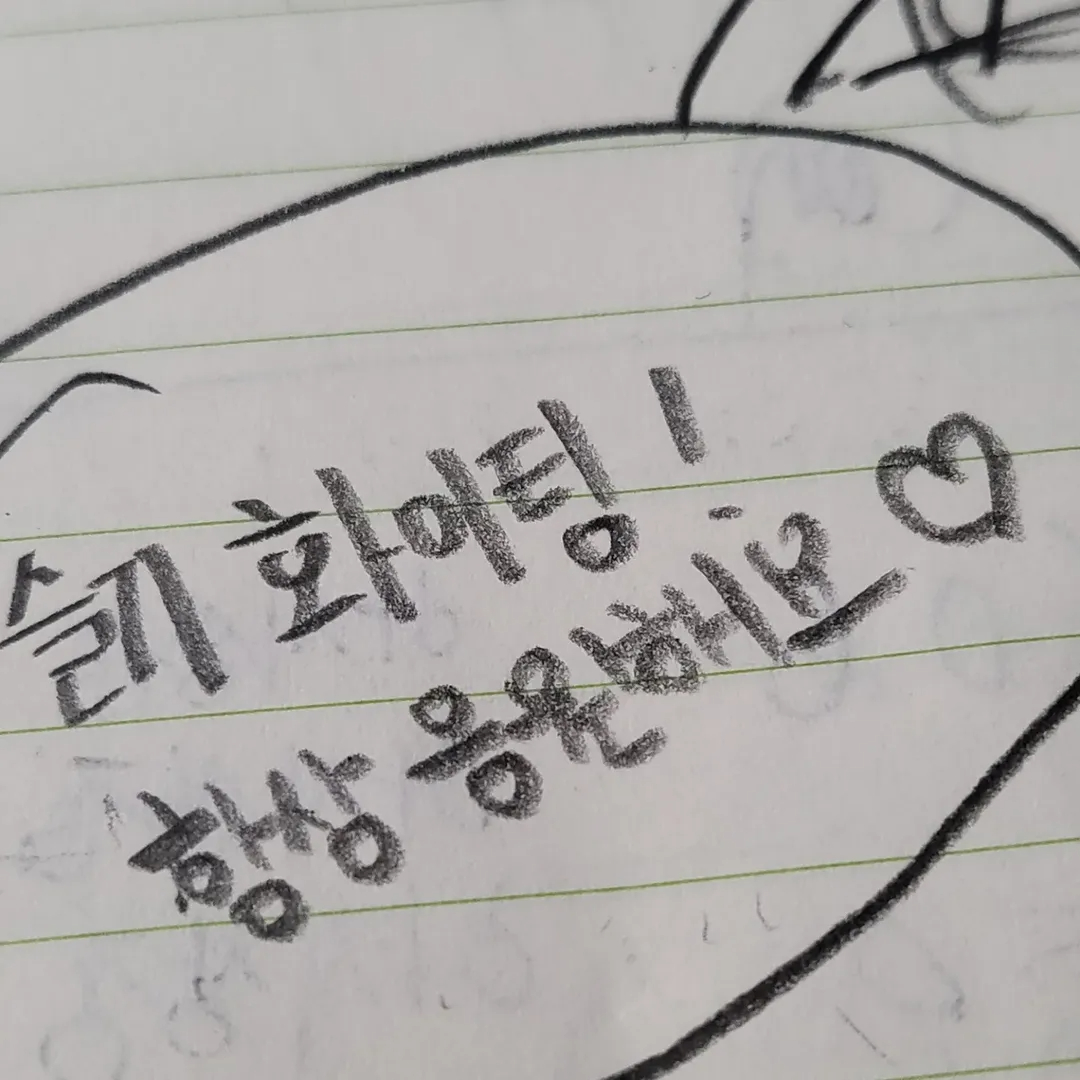 슬기 화이팅!
항상 응원해요♡